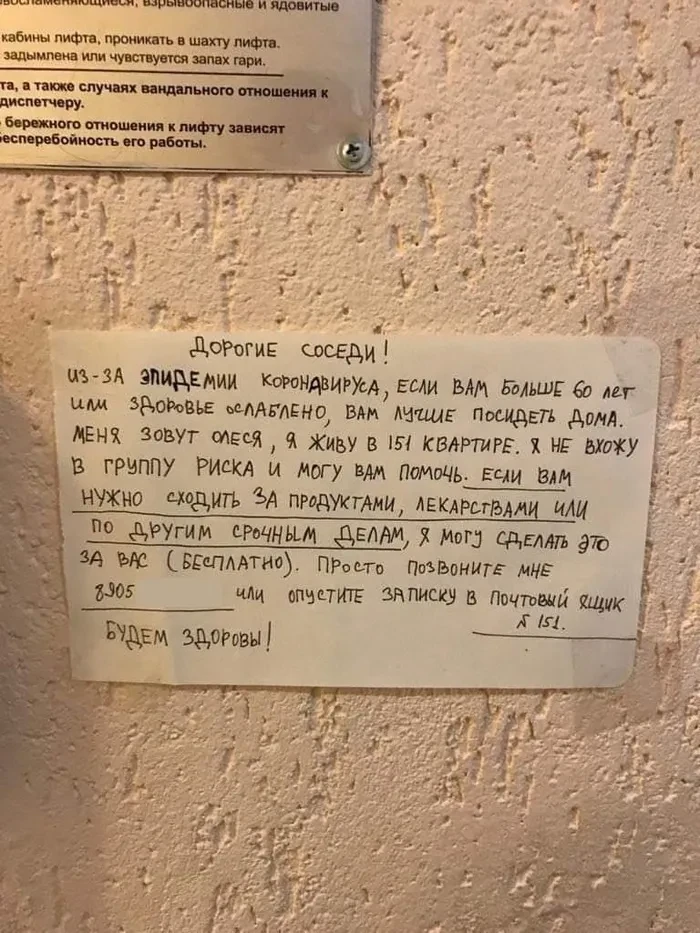 взрывоопасные и ядовитые
кабины лифта, проникать в шахту лифта.
задымлена или чувствуется запах гари.
а также случаях вандального отношения к
диспетчеру.
бережного отношения к лифту зависят
бесперебойность его работы.
ДОРОГИЕ СОСЕДИ!
ИЗ-ЗА ЭПИДЕМИИ КОРОНАВИРУСА, ЕСЛИ ВАМ БОЛЬШЕ 60 ЛЕТ
ИЛИ ЗДОРОВЬЕ ОСЛАБЛЕНО, ВАМ ЛУЧШЕ ПОСИДЕТЬ ДОМА.
МЕНЯ ЗОВУТ ОЛЕСЯ, Я ЖИВУ В 151 КВАРТИРЕ. Я НЕ ВХОЖУ
В ГРУППУ РИСКА И МОГУ ВАМ ПОМОЧЬ. ЕСЛИ ВАМ
НУЖНО СХОДИТЬ ЗА ПРОДУКТАМИ, ЛЕКАРСТВАМИ ИЛИ
ПО ДРУГИМ СРОЧНЫМ ДЕЛАМ, Я МОГУ СДЕЛАТЬ ЭТО
ЗА ВАС (БЕСПЛАТНО). ПРОСТО ПОЗВОНИТЕ МНЕ
8905 ИЛИ ОПУСТИТЕ ЗАПИСКУ В ПОЧТОВЫЙ ЯЩИК
№ 151.
БУДЕМ ЗДОРОВЫ!